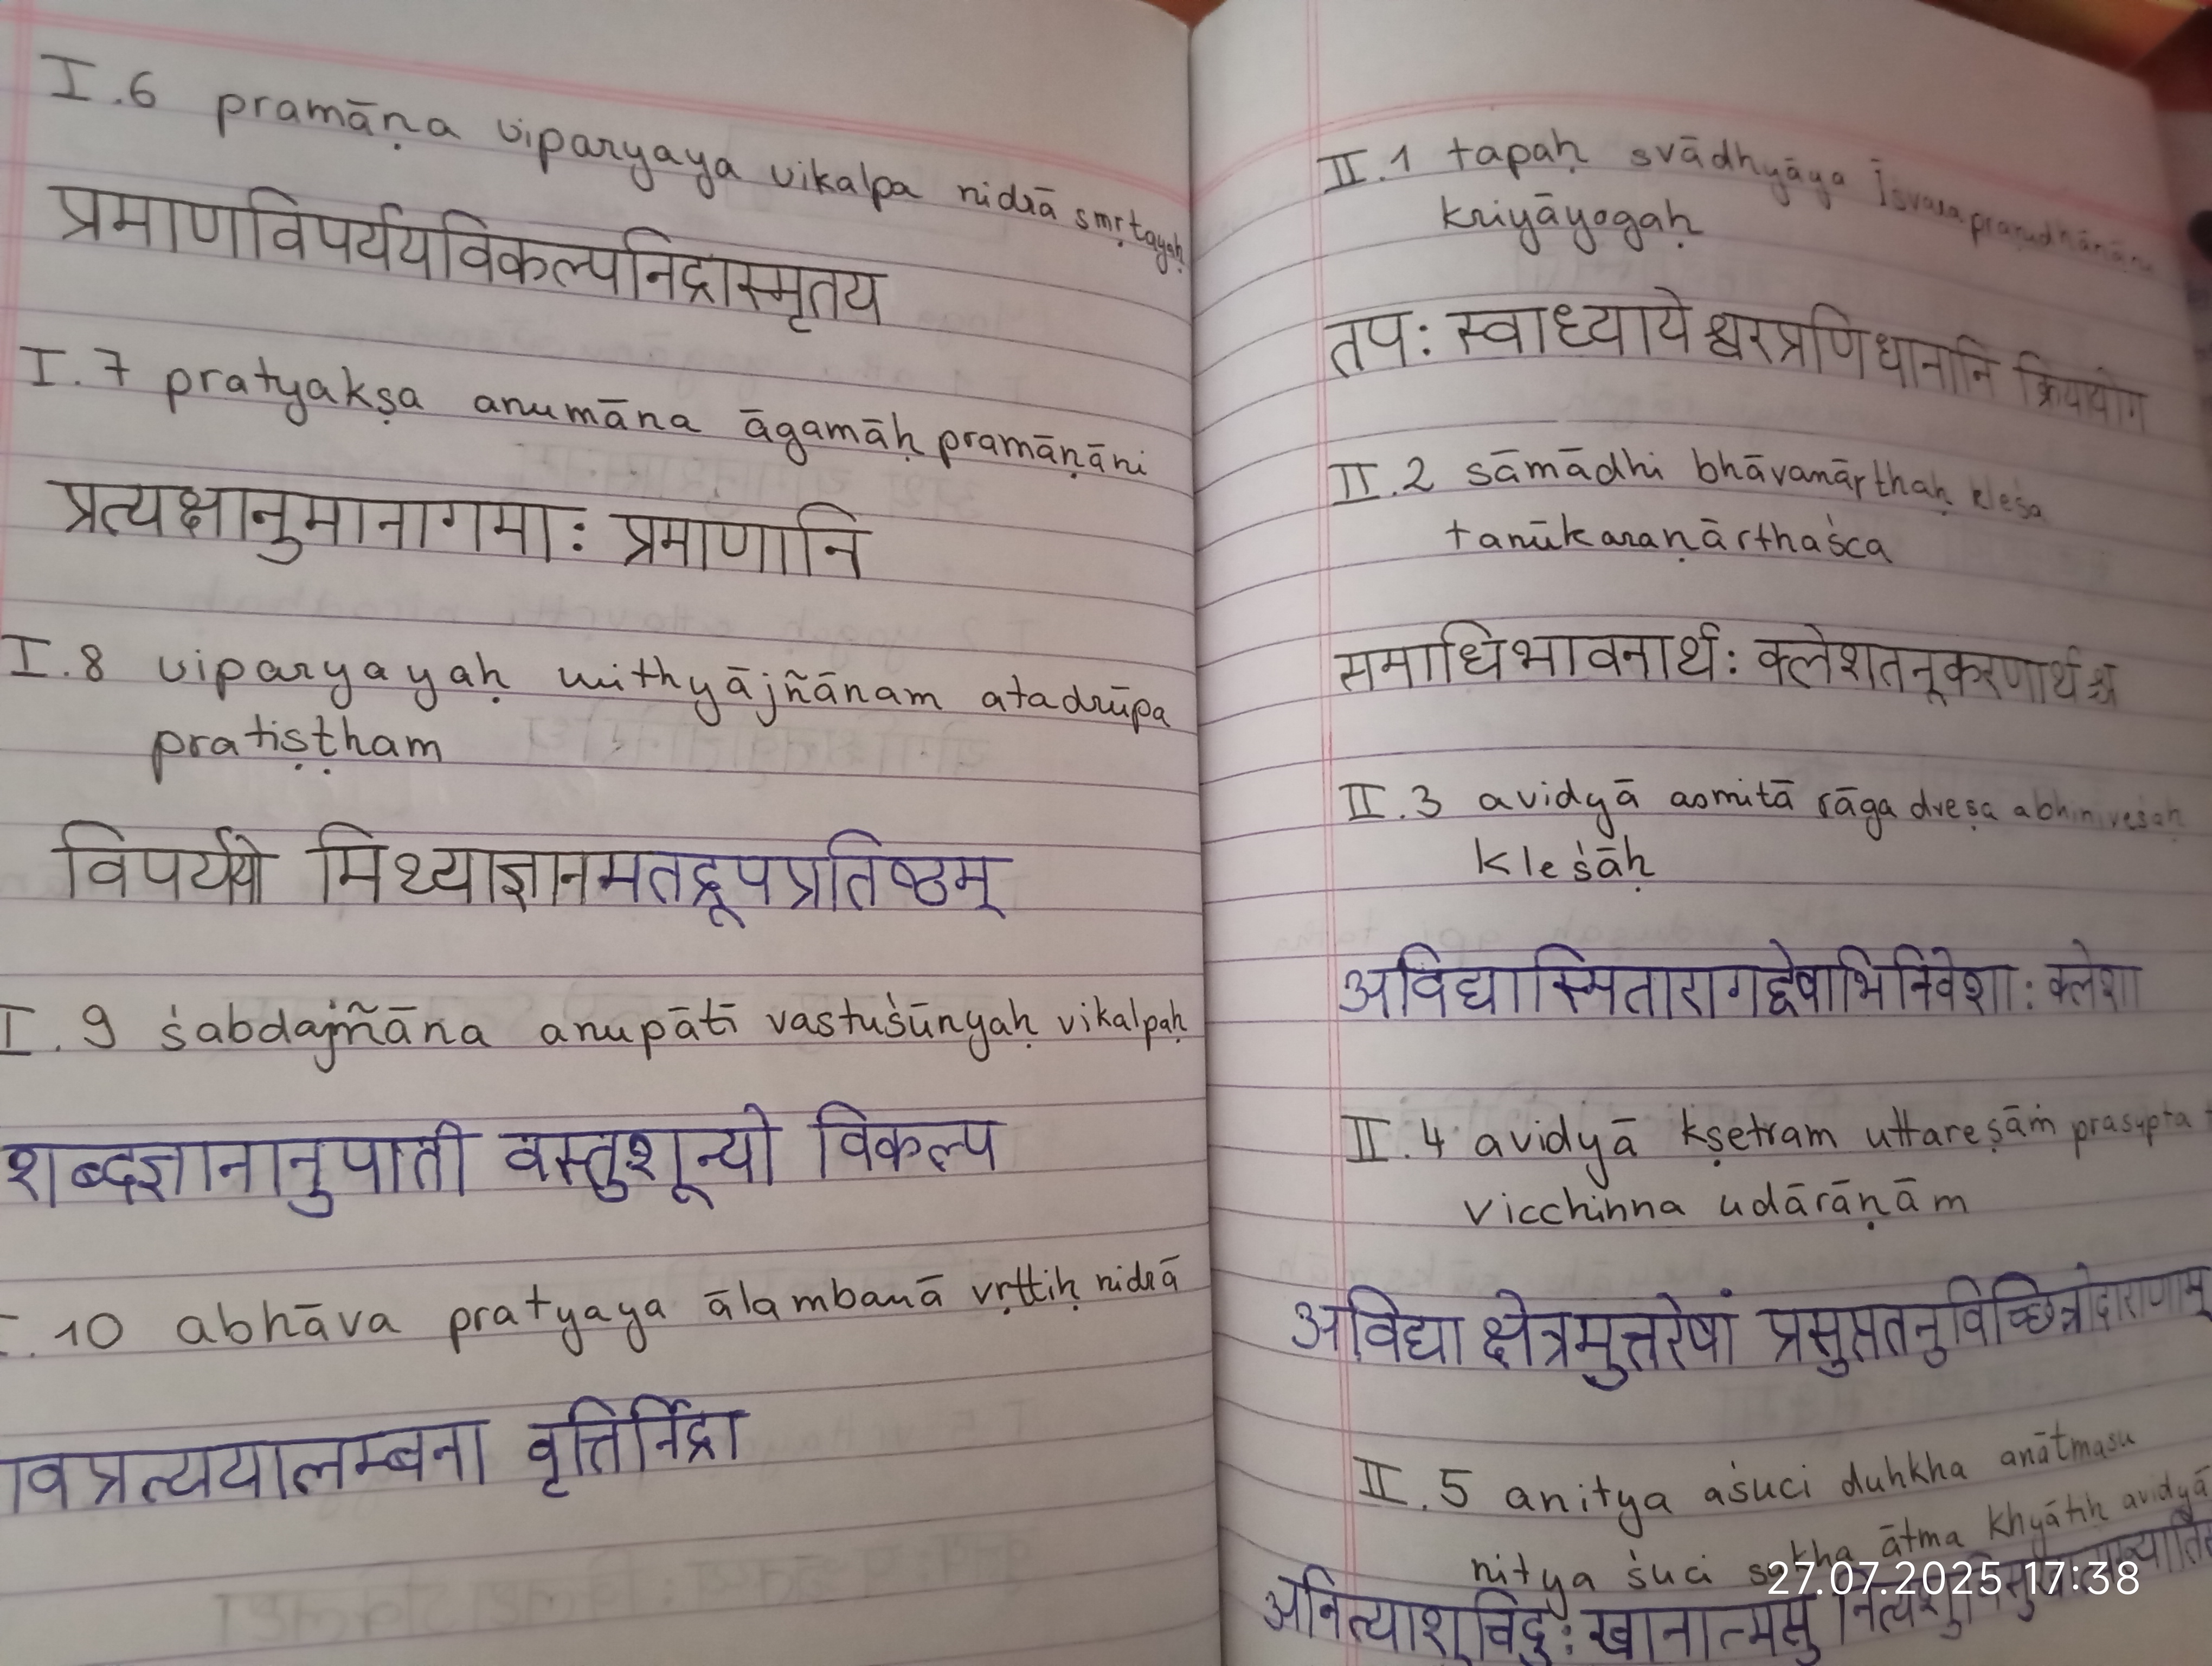 I.6 pramāṇa viparyaya vikalpa nidrā smṛtayaḥ
प्रमाणविपर्ययविकल्पनिद्रास्मृतय
I.7 pratyakṣa anumāna āgamāḥ pramāṇāni
प्रत्यक्षानुमानागमाः प्रमाणानि
I.8 viparyayaḥ mithyājñānam atadrūpa
pratiṣṭham
विपर्ययो मिथ्याज्ञानमतद्रूपप्रतिष्ठम्
I.9 śabdajñāna anupātī vastuśūnyaḥ vikalpaḥ
शब्दज्ञानानुपाती वस्तुशून्यो विकल्प
.10 abhāva pratyaya ālambanā vṛttiḥ nidrā
वप्रत्ययालम्बना वृत्तिर्निद्रा
II.1 tapaḥ svādhyāya īsvara praṇidhānāni
kriyāyogaḥ
तपः स्वाध्यायेश्वरप्रणिधानानि क्रियायोग
II.2 sāmādhi bhāvanārthaḥ kleśa
tanūkaraṇārthaśca
समाधिभावनार्थः क्लेशतनूकरणार्थश्च
II.3 avidyā asmitā rāga dveṣa abhiniveśaḥ
kleśāḥ
अविद्यास्मितारागद्वेषाभिनिवेशाः क्लेशा
II.4 avidyā kṣetram uttareṣāṁ prasupta
vicchinna udārāṇām
अविद्या क्षेत्रमुत्तरेषां प्रसुप्ततनुविच्छिन्नोदाराणाम्
II.5 anitya aśuci duhkha anātmasu
nitya śuci sukha ātma khyātiḥ avidyā
अनित्याशुचिदुःखानात्मसु
27.07.2025 17:38